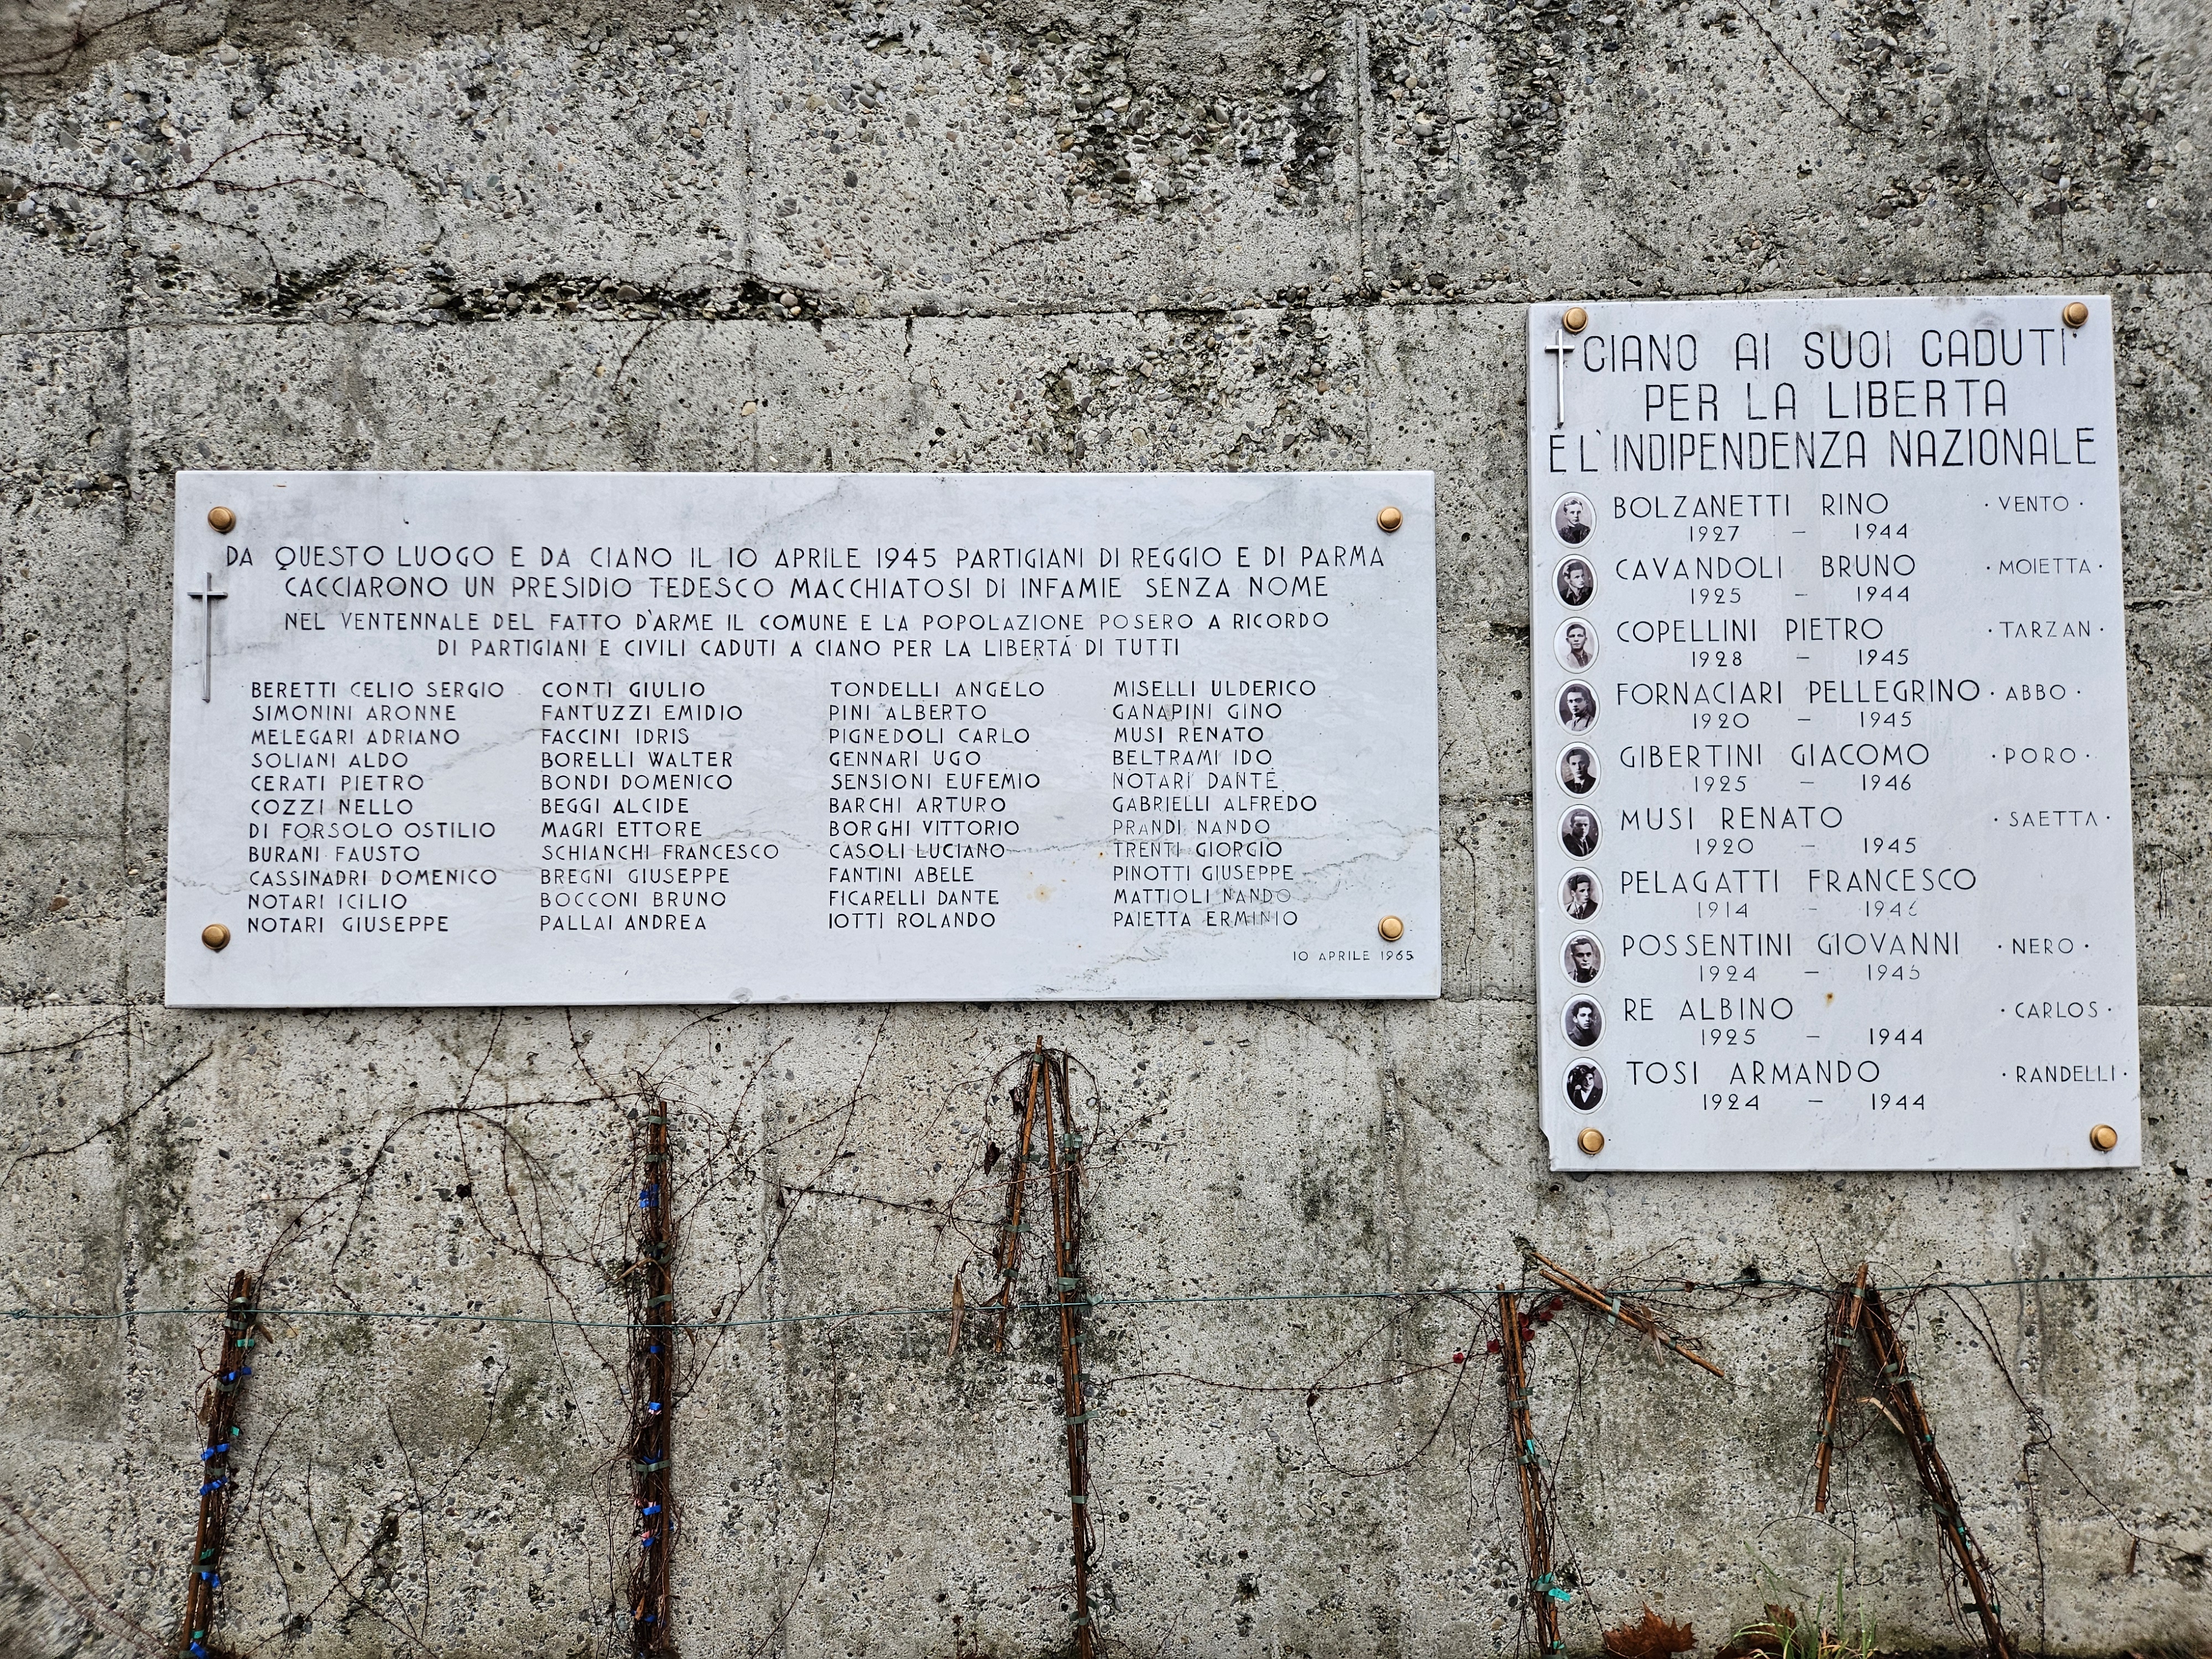 DA QUESTO LUOGO E DA CIANO IL 10 APRILE 1945 PARTIGIANI DI REGGIO E DI PARMA
CACCIARONO UN PRESIDIO TEDESCO MACCHIATOSI DI INFAMIE SENZA NOME
NEL VENTENNALE DEL FATTO D'ARME IL COMUNE E LA POPOLAZIONE POSERO A RICORDO
DI PARTIGIANI E CIVILI CADUTI A CIANO PER LA LIBERTÁ DI TUTTI
BERETTI CELIO SERGIO
SIMONINI ARONNE
MELEGARI ADRIANO
SOLIANI ALDO
CERATI PIETRO
COZZI NELLO
DI FORSOLO OSTILIO
BURANI FAUSTO
CASSINADRI DOMENICO
NOTARI ICILIO
NOTARI GIUSEPPE
CONTI GIULIO
FANTUZZI EMIDIO
FACCINI IDRIS
BORELLI WALTER
BONDI DOMENICO
BEGGI ALCIDE
MAGRI ETTORE
SCHIANCHI FRANCESCO
BREGNI GIUSEPPE
BOCCONI BRUNO
PALLAI ANDREA
TONDELLI ANGELO
PINI ALBERTO
PIGNEDOLI CARLO
GENNARI UGO
SENSIONI EUFEMIO
BARCHI ARTURO
BORGHI VITTORIO
CASOLI LUCIANO
FANTINI ABELE
FICARELLI DANTE
IOTTI ROLANDO
MISELLI ULDERICO
GANAPINI GINO
MUSI RENATO
BELTRAMI IDO
NOTARI DANTE
GABRIELLI ALFREDO
PRANDI NANDO
TRENTI GIORGIO
PINOTTI GIUSEPPE
MATTIOLI NANDO
PAIETTA ERMINIO
10 APRILE 1965
CIANO AI SUOI CADUTI
PER LA LIBERTA
E L'INDIPENDENZA NAZIONALE
BOLZANETTI RINO · VENTO ·
1927 – 1944
CAVANDOLI BRUNO · MOIETTA ·
1925 – 1944
COPELLINI PIETRO · TARZAN ·
1928 – 1945
FORNACIARI PELLEGRINO · ABBO ·
1920 – 1945
GIBERTINI GIACOMO · PORO ·
1925 – 1946
MUSI RENATO · SAETTA ·
1920 – 1945
PELAGATTI FRANCESCO
1914 –
POSSENTINI GIOVANNI · NERO ·
1924 – 1945
RE ALBINO · CARLOS ·
1925 – 1944
TOSI ARMANDO · RANDELLI ·
1924 – 1944